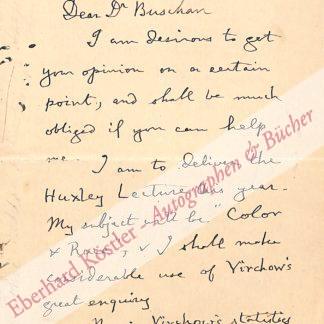 Dear Dr Buschan
I am desirous to get
your opinion on a certain
point, and shall be much
obliged if you can help
me. I am to deliver the
Huxley Lecture this year.
My subject will be "Color
& Race", & I shall make
considerable use of Virchow's
great enquiry
Virchow's statistics
Eberhard Köstler - Autographen & Bücher